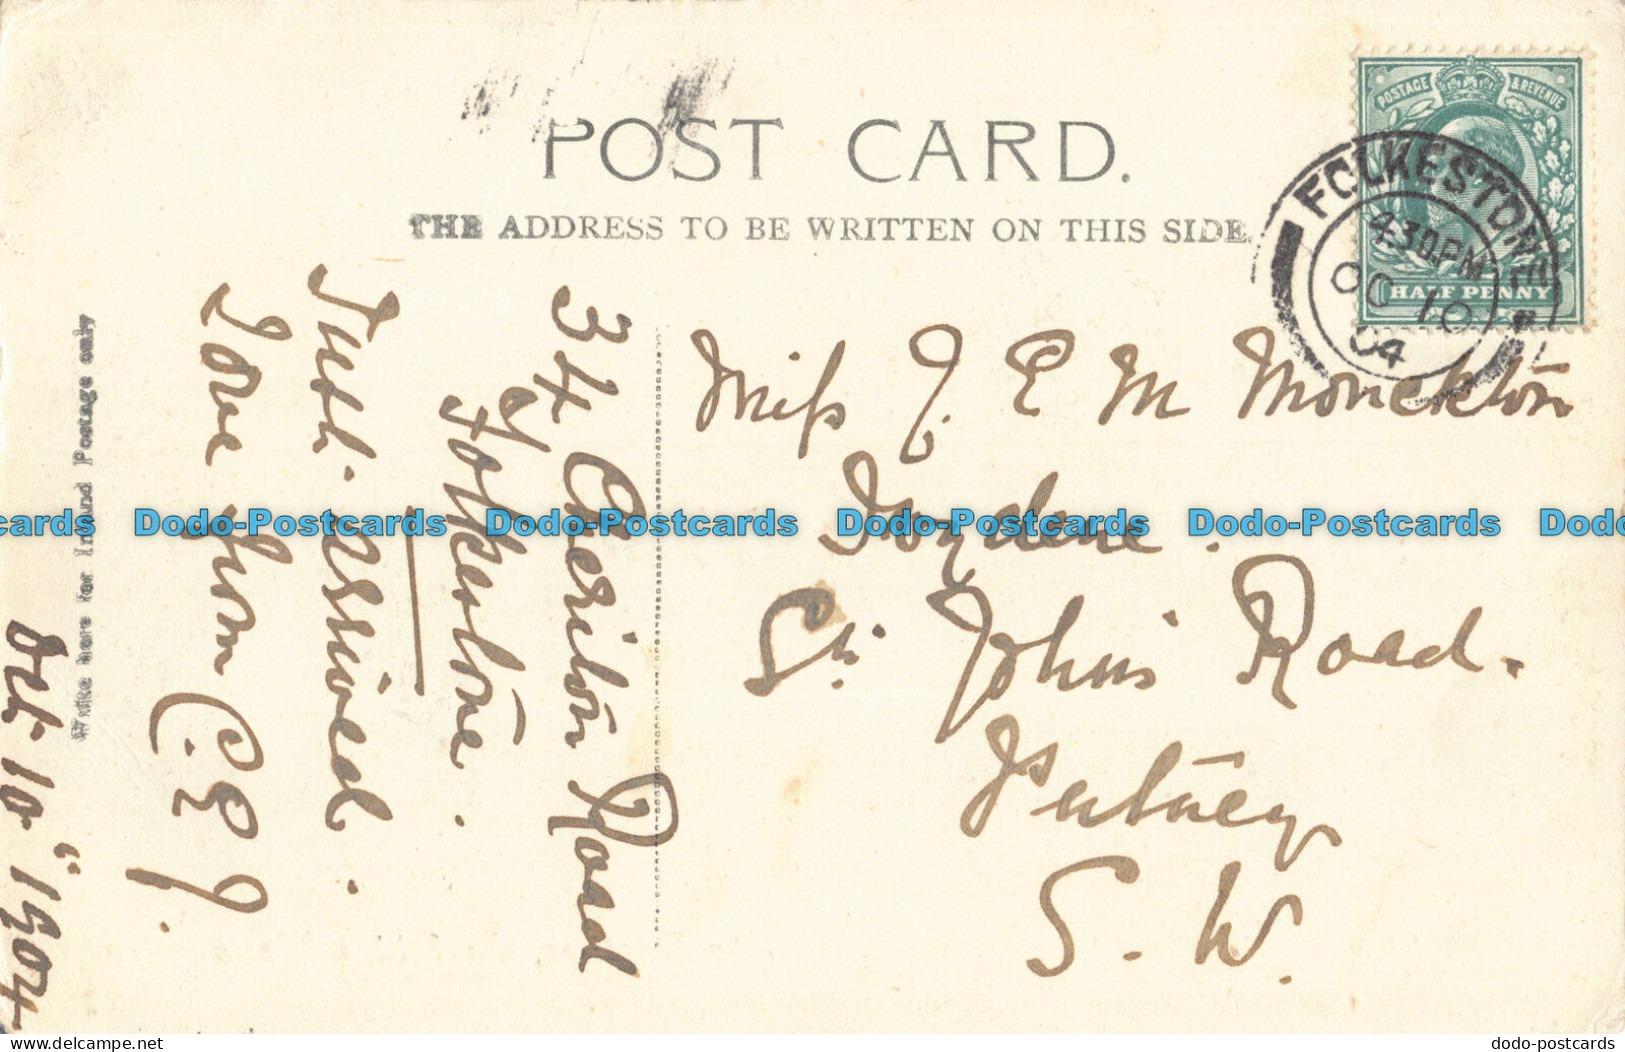 POST CARD.
THE ADDRESS TO BE WRITTEN ON THIS SIDE.
POSTAGE & REVENUE
HALF PENNY
FOLKESTONE
4.30PM
OC 10
04
Miss J. E M Monckton
Ivydene.
St. Johns Road.
Putney
S. W.
34 Cheriton Road
Folkestone.
Just arrived.
Love from C. E J.
Write here for Inland Postage only
Oct. 10" 1904
Dodo-Postcards Dodo-Postcards Dodo-Postcards Dodo-Postcards
Dodo-Postcards.com
dodo-postcards